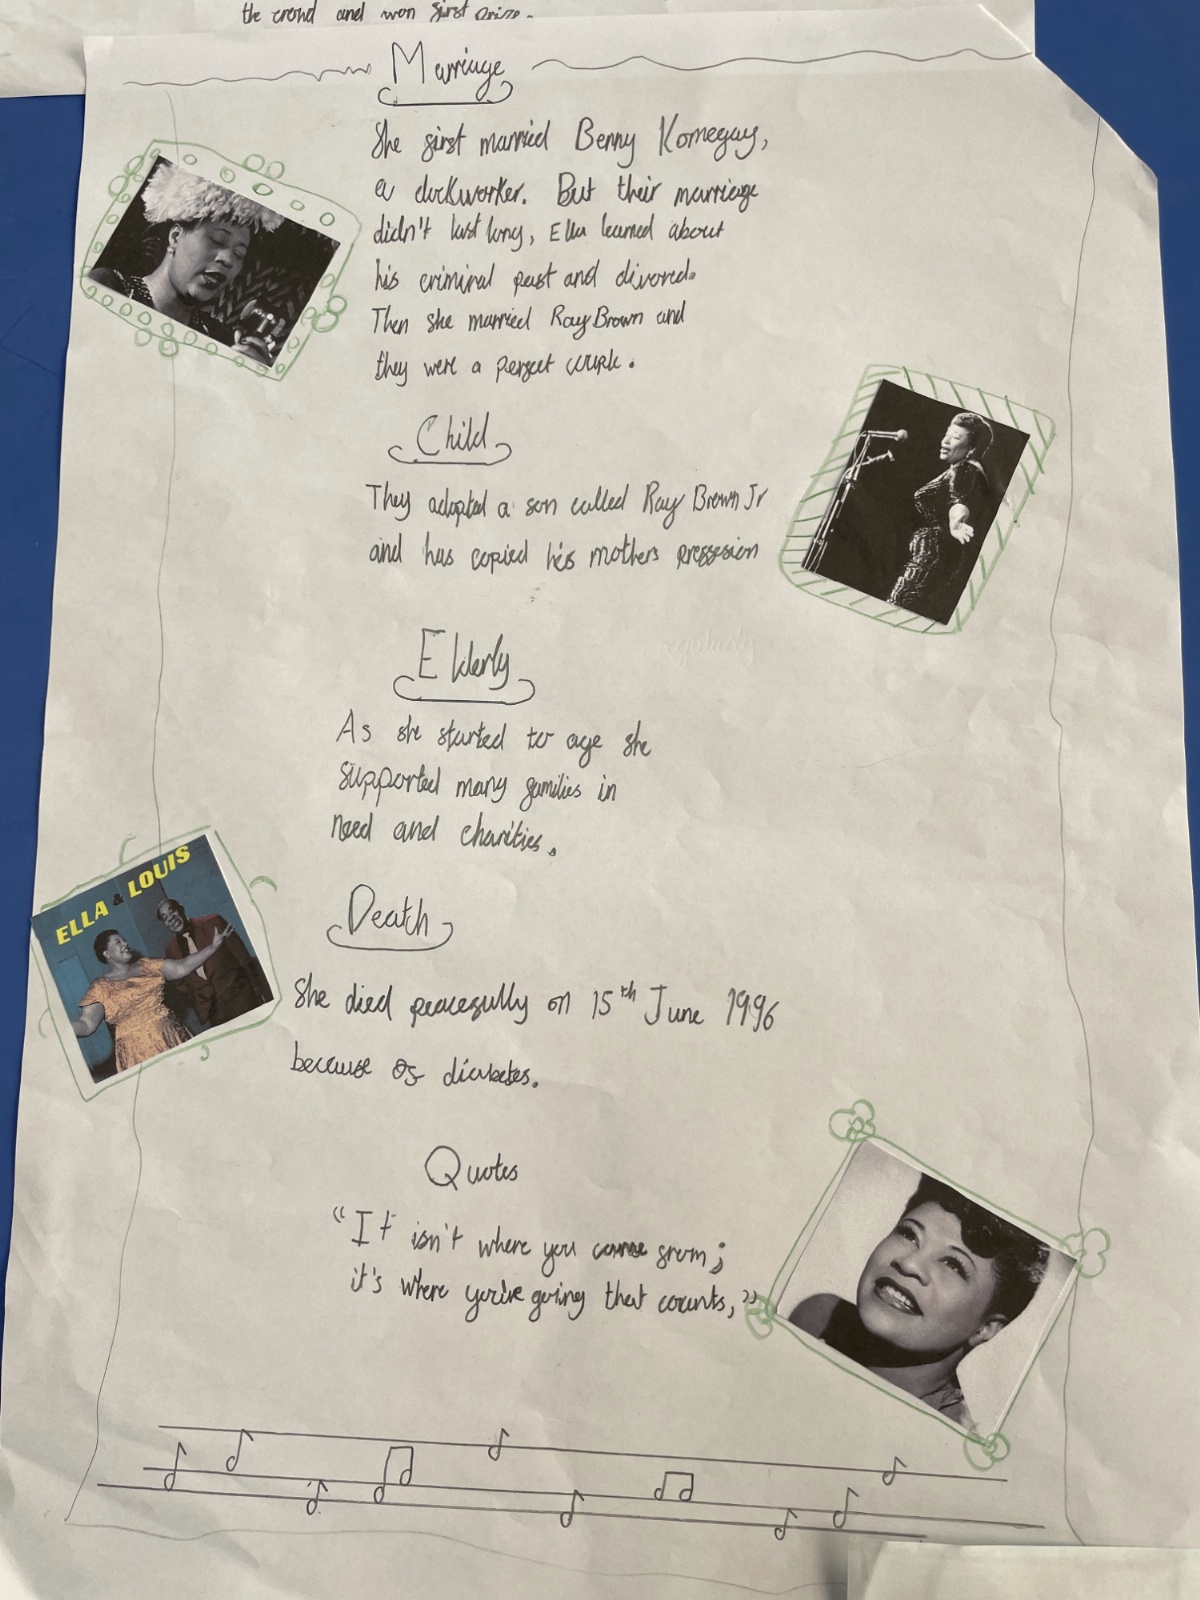 the crowd and won first prize.
Marriage
She first married Benny Kornegay,
a dockworker. But their marriage
didn't last long, Ella learned about
his criminal past and divored.
Then she married Ray Brown and
they were a perfect couple.
Child
They adopted a son called Ray Brown Jr
and has copied his mothers pressesion
regularly
Elderly
As she started to age she
supported many families in
need and charities.
ELLA & LOUIS
Death
She died peacefully on 15th June 1996
because of diabetes.
Quotes
"It isn't where you came from;
it's where you're going that counts,"